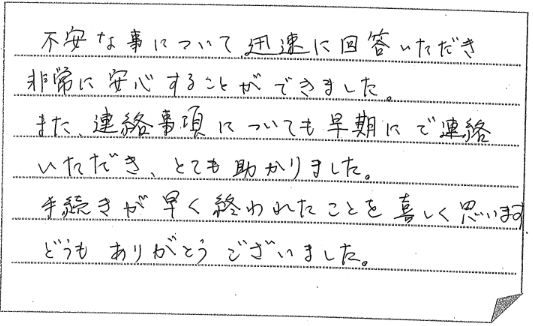 不安な事について迅速に回答いただき
非常に安心することができました。
また、連絡事項についても早期にご連絡
いただき、とても助かりました。
手続きが早く終われたことを喜しく思います
どうもありがとうございました。